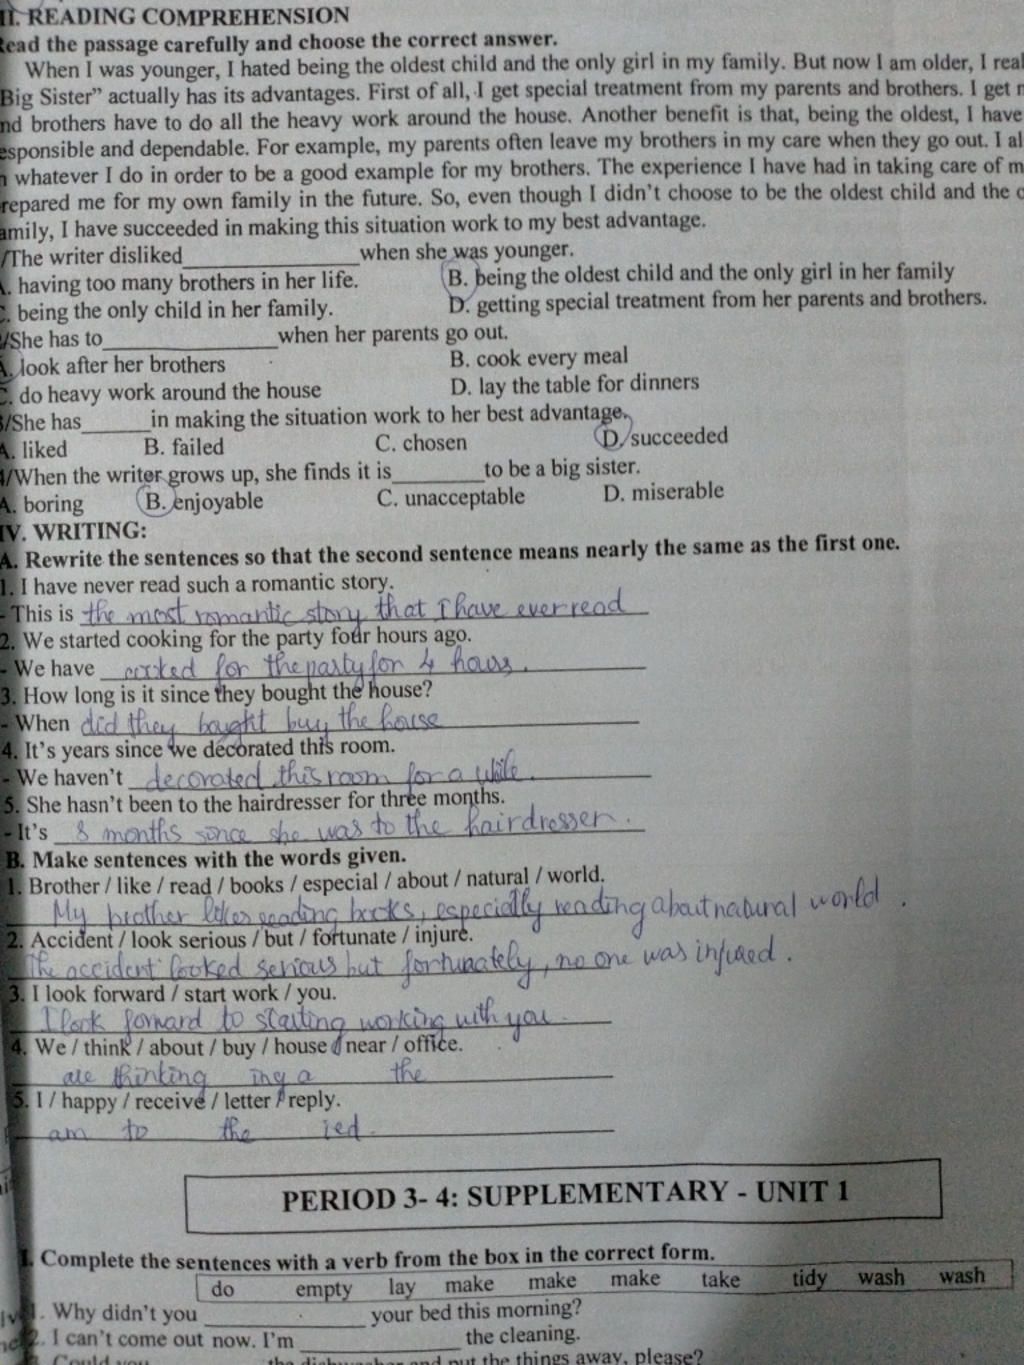 II. READING COMPREHENSION
Read the passage carefully and choose the correct answer.
When I was younger, I hated being the oldest child and the only girl in my family. But now I am older, I real
Big Sister" actually has its advantages. First of all, I get special treatment from my parents and brothers. I get
nd brothers have to do all the heavy work around the house. Another benefit is that, being the oldest, I have
esponsible and dependable. For example, my parents often leave my brothers in my care when they go out. I al
n whatever I do in order to be a good example for my brothers. The experience I have had in taking care of m
repared me for my own family in the future. So, even though I didn't choose to be the oldest child and the o
amily, I have succeeded in making this situation work to my best advantage.
/The writer disliked________________when she was younger.
A. having too many brothers in her life. B. being the oldest child and the only girl in her family
C. being the only child in her family. D. getting special treatment from her parents and brothers.
2/She has to________________when her parents go out.
A. look after her brothers B. cook every meal
C. do heavy work around the house D. lay the table for dinners
3/She has______in making the situation work to her best advantage.
A. liked B. failed C. chosen D. succeeded
4/When the writer grows up, she finds it is________to be a big sister.
A. boring B. enjoyable C. unacceptable D. miserable
IV. WRITING:
A. Rewrite the sentences so that the second sentence means nearly the same as the first one.
1. I have never read such a romantic story.
- This is the most romantic story that I have ever read
2. We started cooking for the party four hours ago.
- We have cooked for the party for 4 hours.
3. How long is it since they bought the house?
- When did they bought buy the house
4. It's years since we decorated this room.
- We haven't decorated this room for a while.
5. She hasn't been to the hairdresser for three months.
- It's 3 months since she was to the hairdresser.
B. Make sentences with the words given.
1. Brother / like / read / books / especial / about / natural / world.
My brother likes reading books, especially reading about natural world.
2. Accident / look serious / but / fortunate / injure.
The accident looked serious but fortunately, no one was injured.
3. I look forward / start work / you.
I look forward to starting working with you.
4. We / think / about / buy / house / near / office.
are thinking ing a the
5. I / happy / receive / letter / reply.
am to the ied.
PERIOD 3- 4: SUPPLEMENTARY - UNIT 1
I. Complete the sentences with a verb from the box in the correct form.
do empty lay make make make take tidy wash wash
1. Why didn't you ________________ your bed this morning?
2. I can't come out now. I'm ________________ the cleaning.
Could you the dishwasher and put the things away, please?